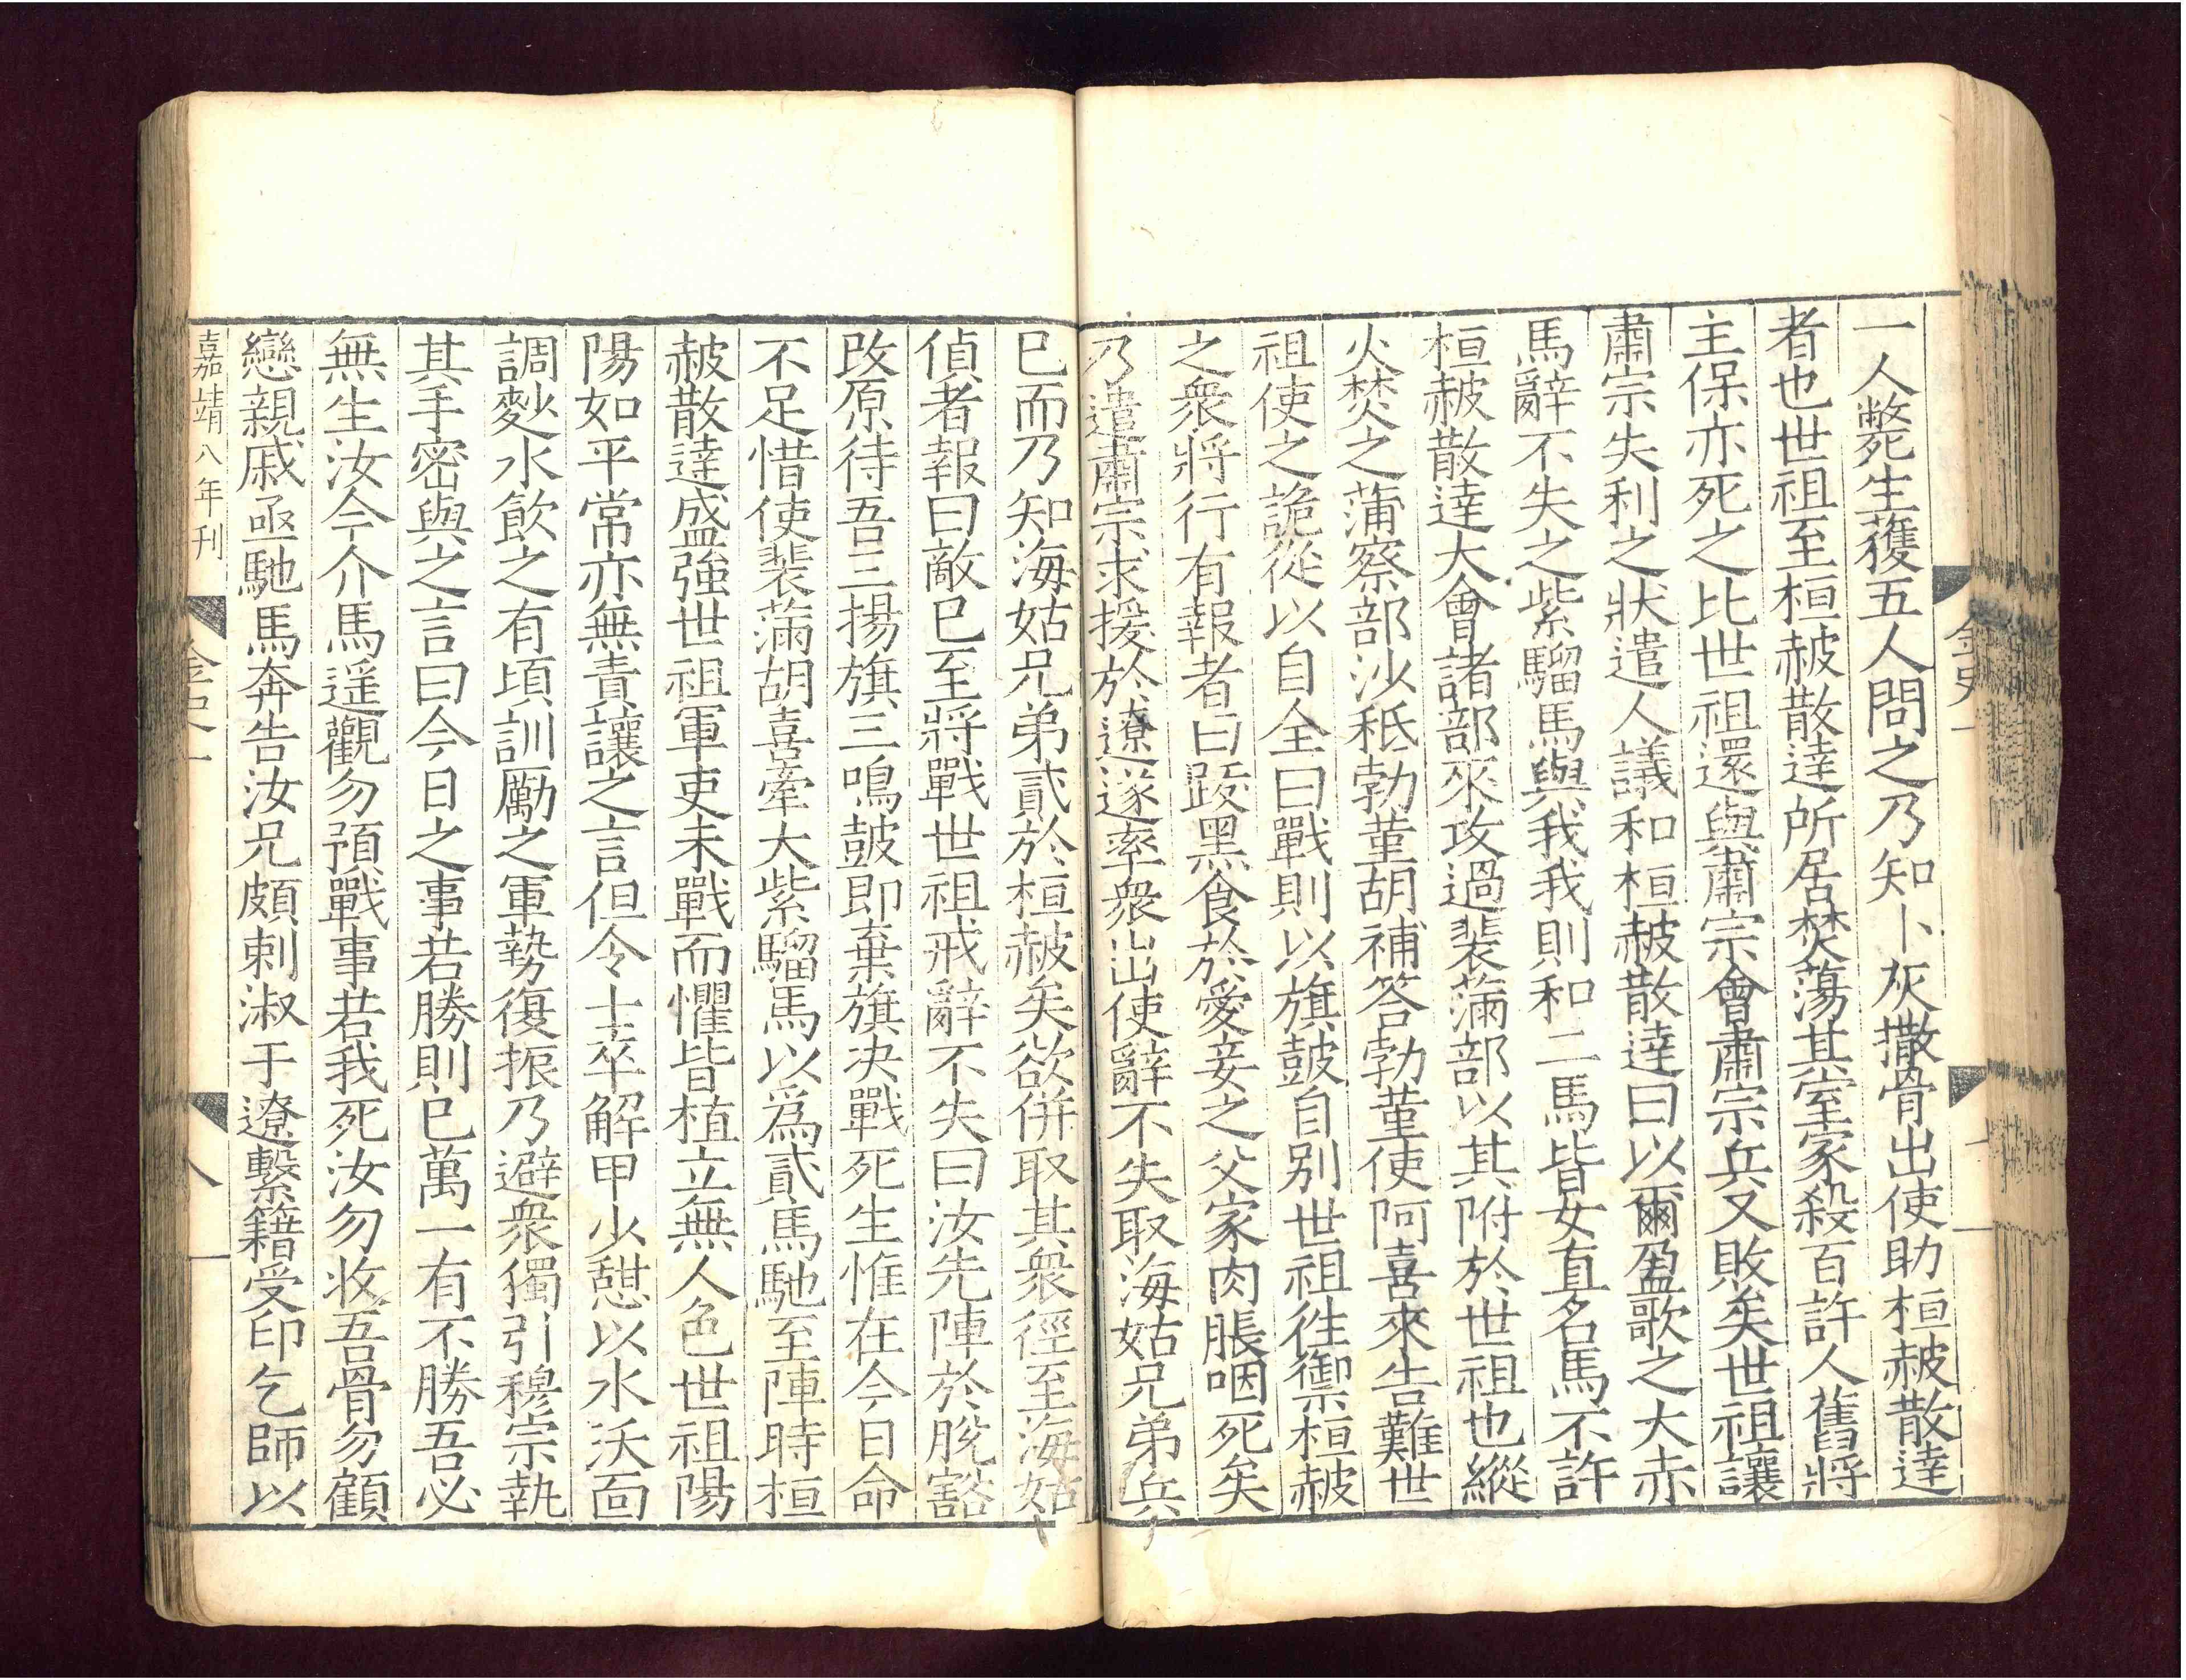 一人斃生獲五人問之乃知卜灰撒骨出使助桓赧散達
者也世祖至桓赧散達所居焚蕩其室家殺百許人舊將
主保亦死之比世祖還與肅宗會肅宗兵又敗矣世祖讓
肅宗失利之狀遣人議和桓赧散達曰以爾盈歌之大赤
馬辭不失之紫騮馬與我我則和二馬皆女直名馬不許
桓赧散達大會諸部來攻過裴滿部以其附於世祖也縱
火焚之蒲察部沙秪勃菫胡補答勃菫使阿喜來告難世
祖使之詭從以自全曰戰則以旗鼓自别世祖往禦桓赧
之衆將行有報者曰跋黑食於愛妾之父家肉脹咽死矣
乃遣肅宗求援於遼遂率衆出使辭不失取海姑兄弟兵
已而乃知海姑兄弟貳於桓赧矣欲併取其衆徑至海姑
偵者報曰敵已至將戰世祖戒辭不失曰汝先陣於脫豁
改原待吾三揚旗三鳴鼓即棄旗決戰死生惟在今日命
不足惜使裴滿胡喜牽大紫騮馬以爲貳馬馳至陣時桓
赧散達盛強世祖軍吏未戰而懼皆植立無人色世祖陽
陽如平常亦無責讓之言但令士卒解甲少憩以水沃面
調麨水飲之有頃訓勵之軍勢復振乃避衆獨引穆宗執
其手密與之言曰今日之事若勝則已萬一有不勝吾必
無生汝今介馬遥觀勿預戰事若我死汝勿收吾骨勿顧
戀親戚亟馳馬奔告汝兄頗剌淑于遼繫籍受印乞師以
嘉靖八年刊
金史一
八